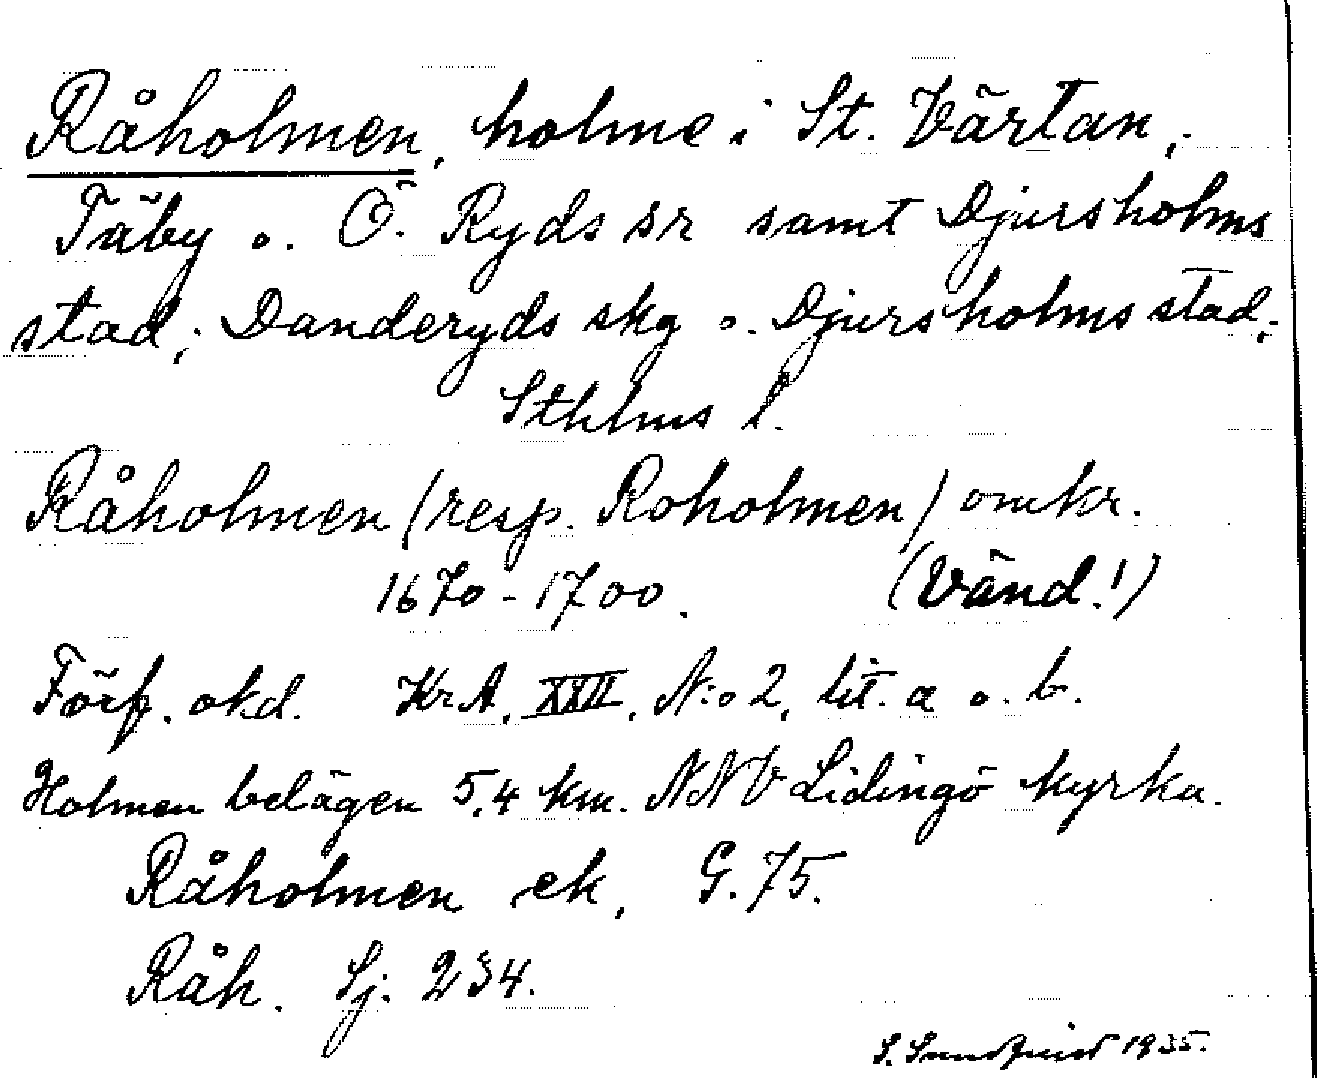 Råholmen, holme i St. Värtan,
Täby o. Ö. Ryds sr samt Djursholms
stad; Danderyds skg o. Djursholms stad;
Sthlms l.
Råholmen (resp. Roholmen) omkr.
1670-1700. (Vänd!)
Förf. okd. KrA, XXII, N:o 2, lit. a o. b.
Holmen belägen 5,4 km. NNV Lidingö kyrka.
Råholmen ek, G. 75.
Råh. Sj. 234.
S. Sundqvist 1935.